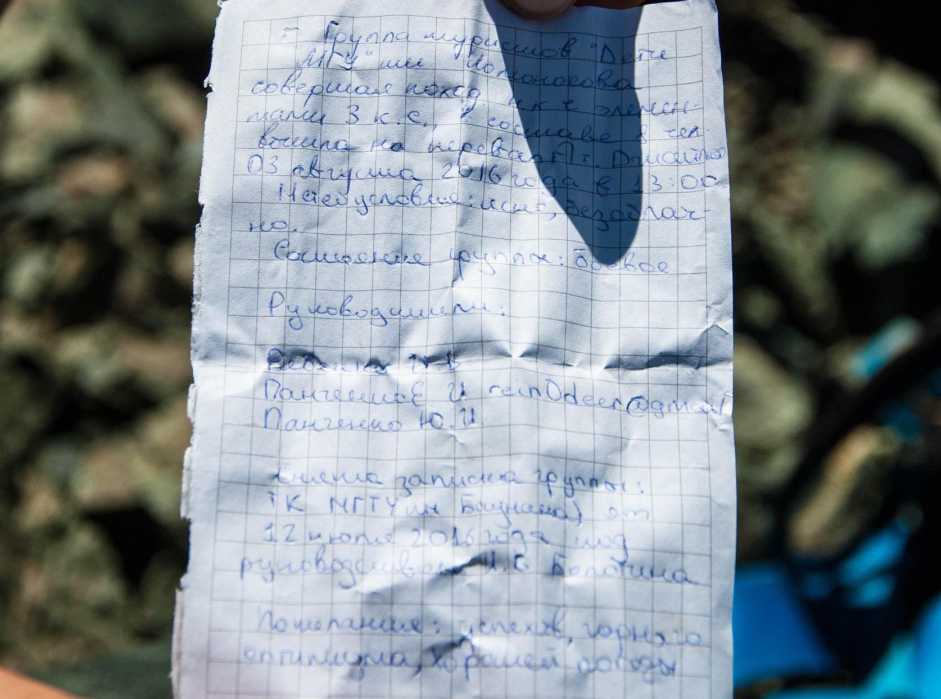 - Группа туристов "Дети
МГУ" им Ломоносова
совершая поход 2 к.с. с элемен-
тами 3 к.с. в составе 8 чел.
вышла на перевал
03 августа 2016 года в 13:00
Метеоусловия: ясно, безоблач-
но.
Состояние группы: боевое
Руководители:
Панченко Е И
Панченко Ю.И
снята записка группы:
ТК МГТУ им Баумана, от
12 июля 2016 года под
руководством Болотина
Пожелания: успехов, горного
оптимизма, хорошей погоды